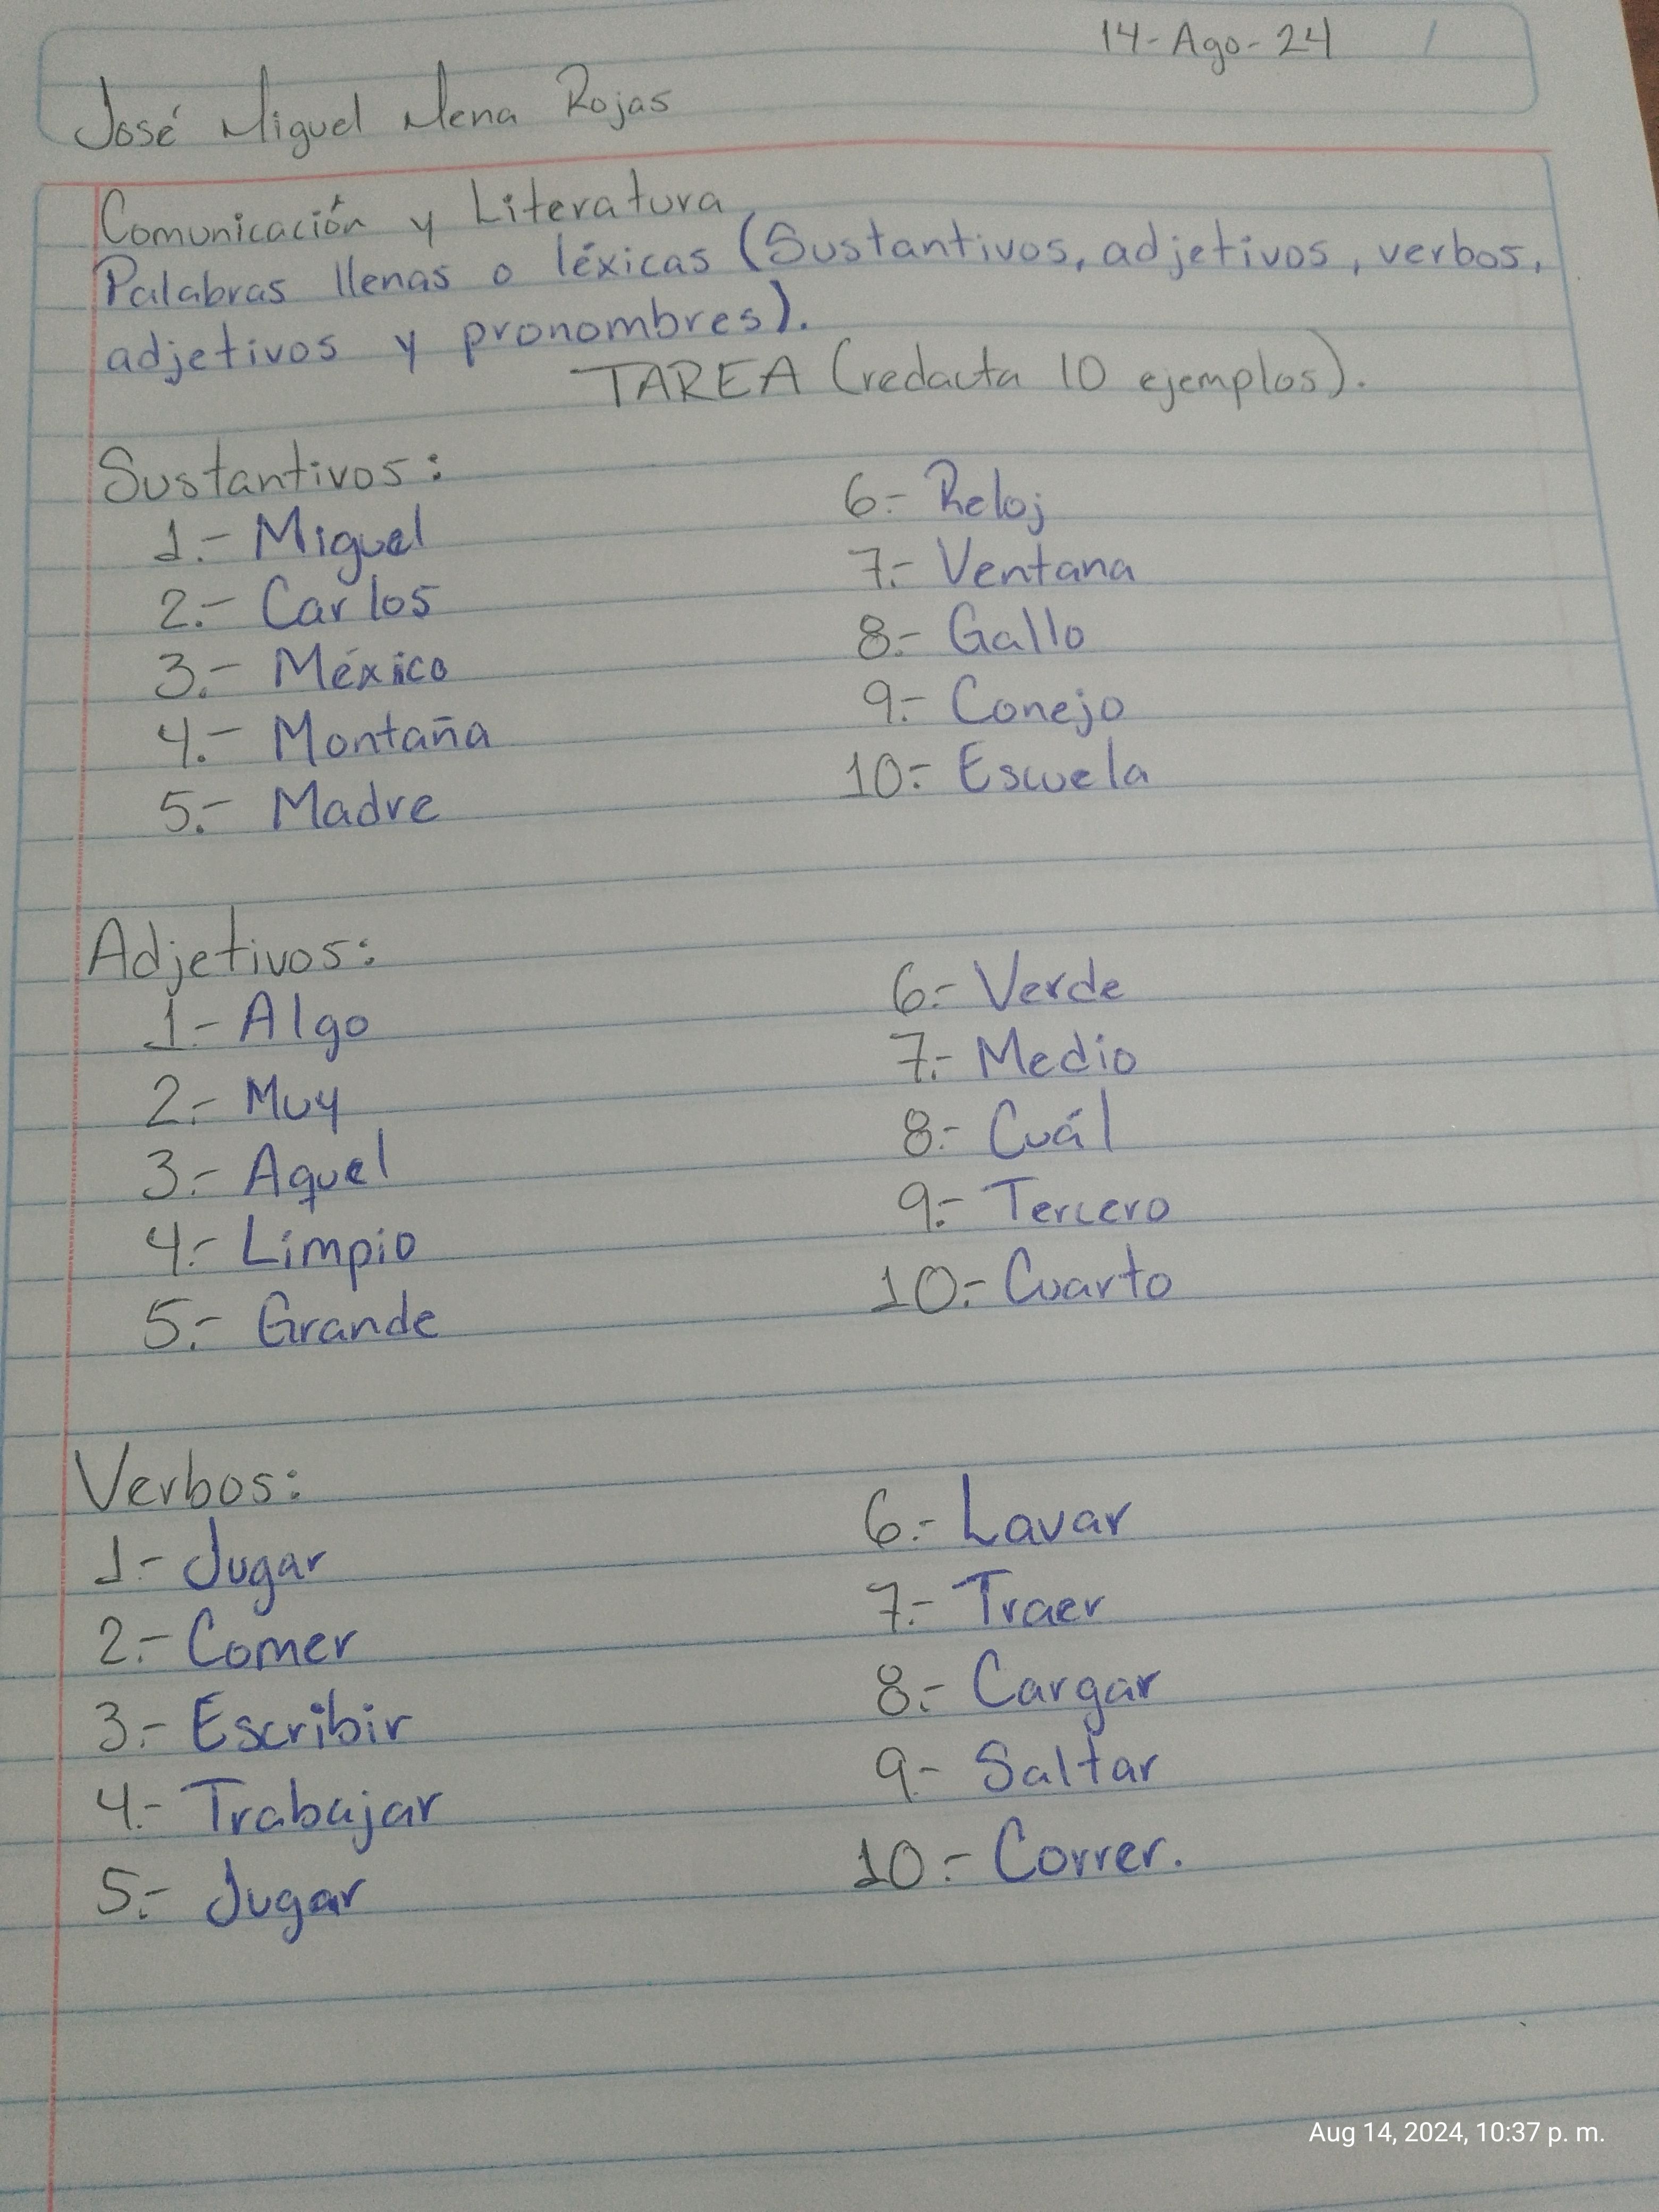 14-Ago-24
José Miguel Mena Rojas
Comunicación y Literatura
Palabras llenas o léxicas (Sustantivos, adjetivos, verbos,
adjetivos y pronombres).
TAREA (redacta 10 ejemplos).
Sustantivos:
1.- Miguel
2.- Carlos
3.- México
4.- Montaña
5.- Madre
6.- Reloj
7.- Ventana
8.- Gallo
9.- Conejo
10.- Escuela
Adjetivos:
1.- Algo
2.- Muy
3.- Aquel
4.- Limpio
5.- Grande
6.- Verde
7.- Medio
8.- Cuál
9.- Tercero
10.- Cuarto
Verbos:
1- Jugar
2.- Comer
3.- Escribir
4.- Trabajar
5.- Jugar
6.- Lavar
7.- Traer
8.- Cargar
9- Saltar
10.- Correr.
Aug 14, 2024, 10:37 p. m.